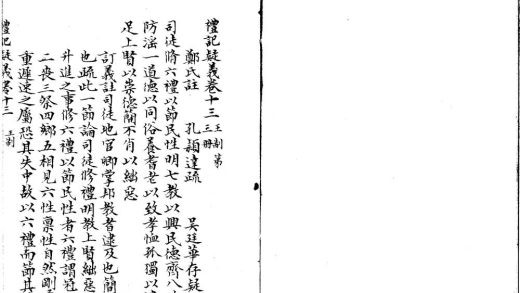 禮記疑義卷十三 王制第三冊
鄭氏註 孔穎達疏 吳廷華存疑
司徒脩六禮以節民性明七教以興民德齊八
防淫一道德以同俗養耆老以致孝恤孤獨以
足上賢以崇德簡不肖以絀惡
訂義註司徒地官卿掌邦教者逮及也簡
也疏此一節論司徒修禮明教上賢絀惡
升進之事修六禮以節民性者六禮謂冠
二喪三祭四鄉五相見六性稟性自然剛
重遲速之屬恐其失中故以六禮而節其
禮記疑義卷十三 王制